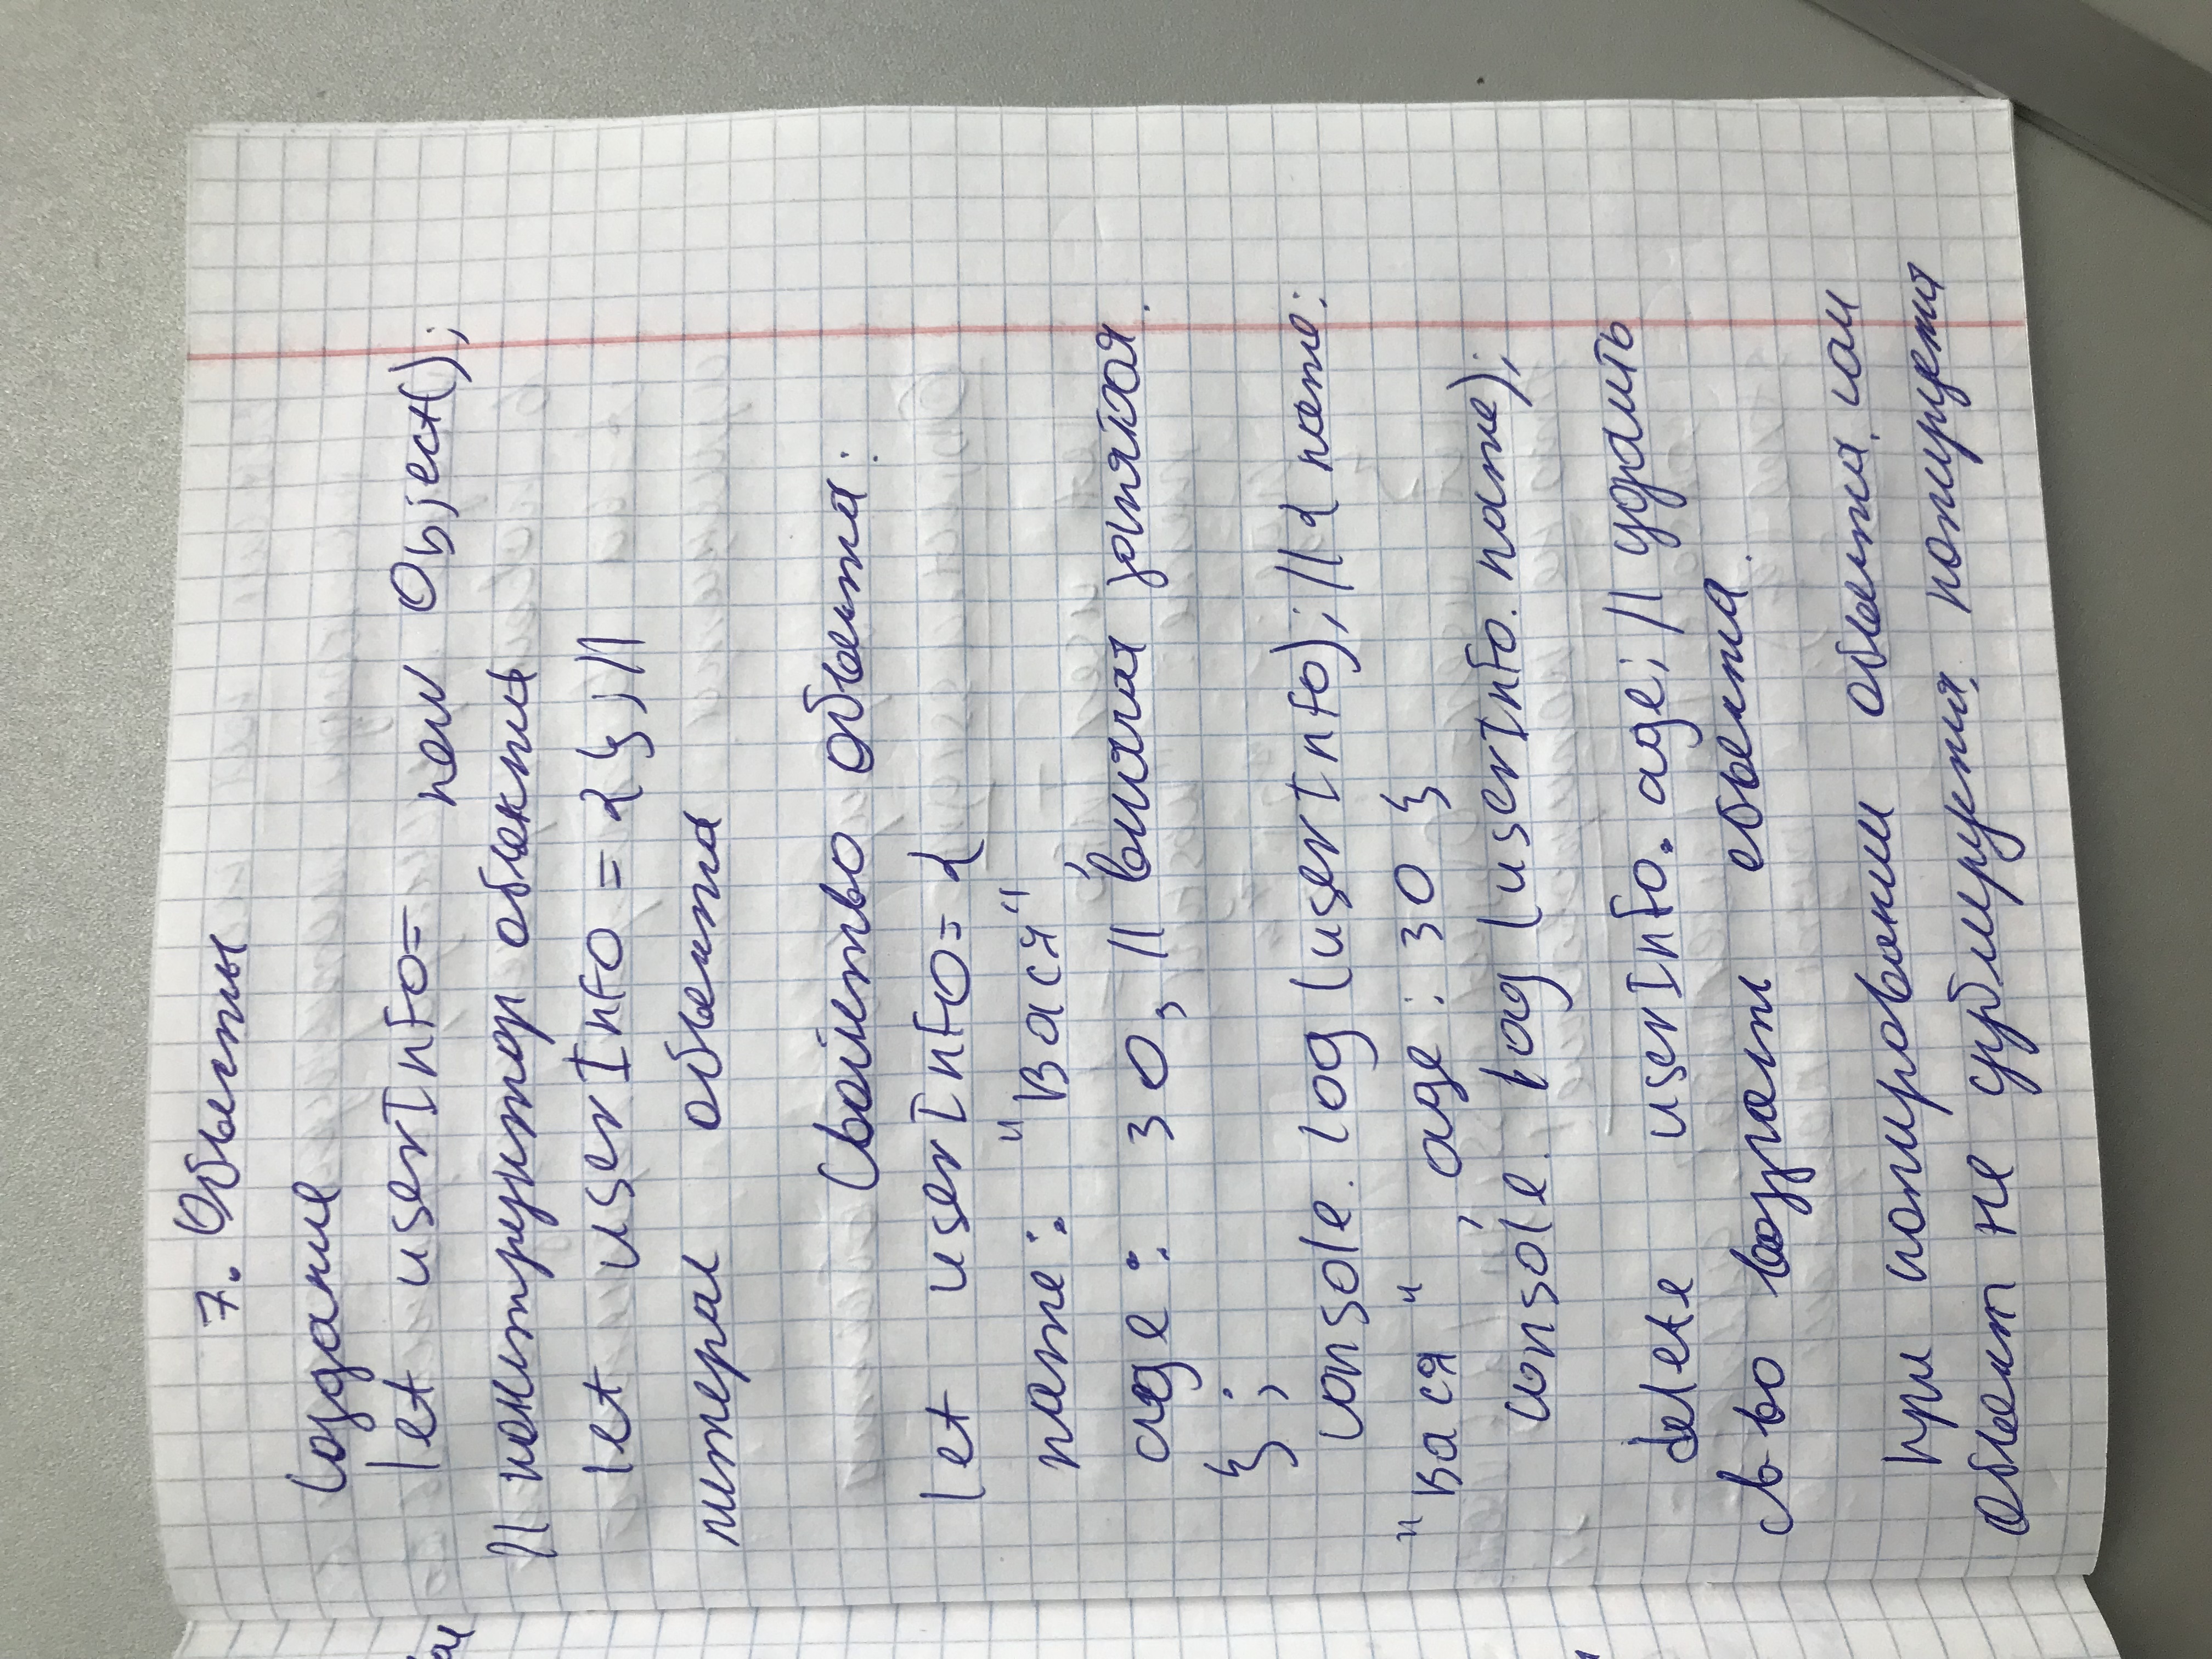 7. Объекты
Создание
let userInfo= new Object();
// конструктор объекта
let userInfo = {}; //
литерал объекта
Свойство объекта:
let userInfo= {
name: "Вася",
age: 30, // висячая запятая.
};
console.log(userInfo); // { name:
"Вася", age: 30 }
console.log(userInfo.name);
delete userInfo.age; // удалить
св-во возраст объекта.
При копировании объекта, сам
объект не дублируется, копируется